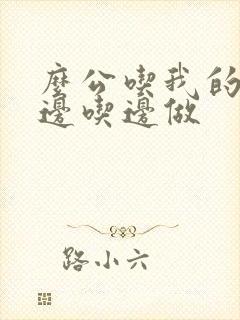 麼公喫我的
邊喫邊做
路小六